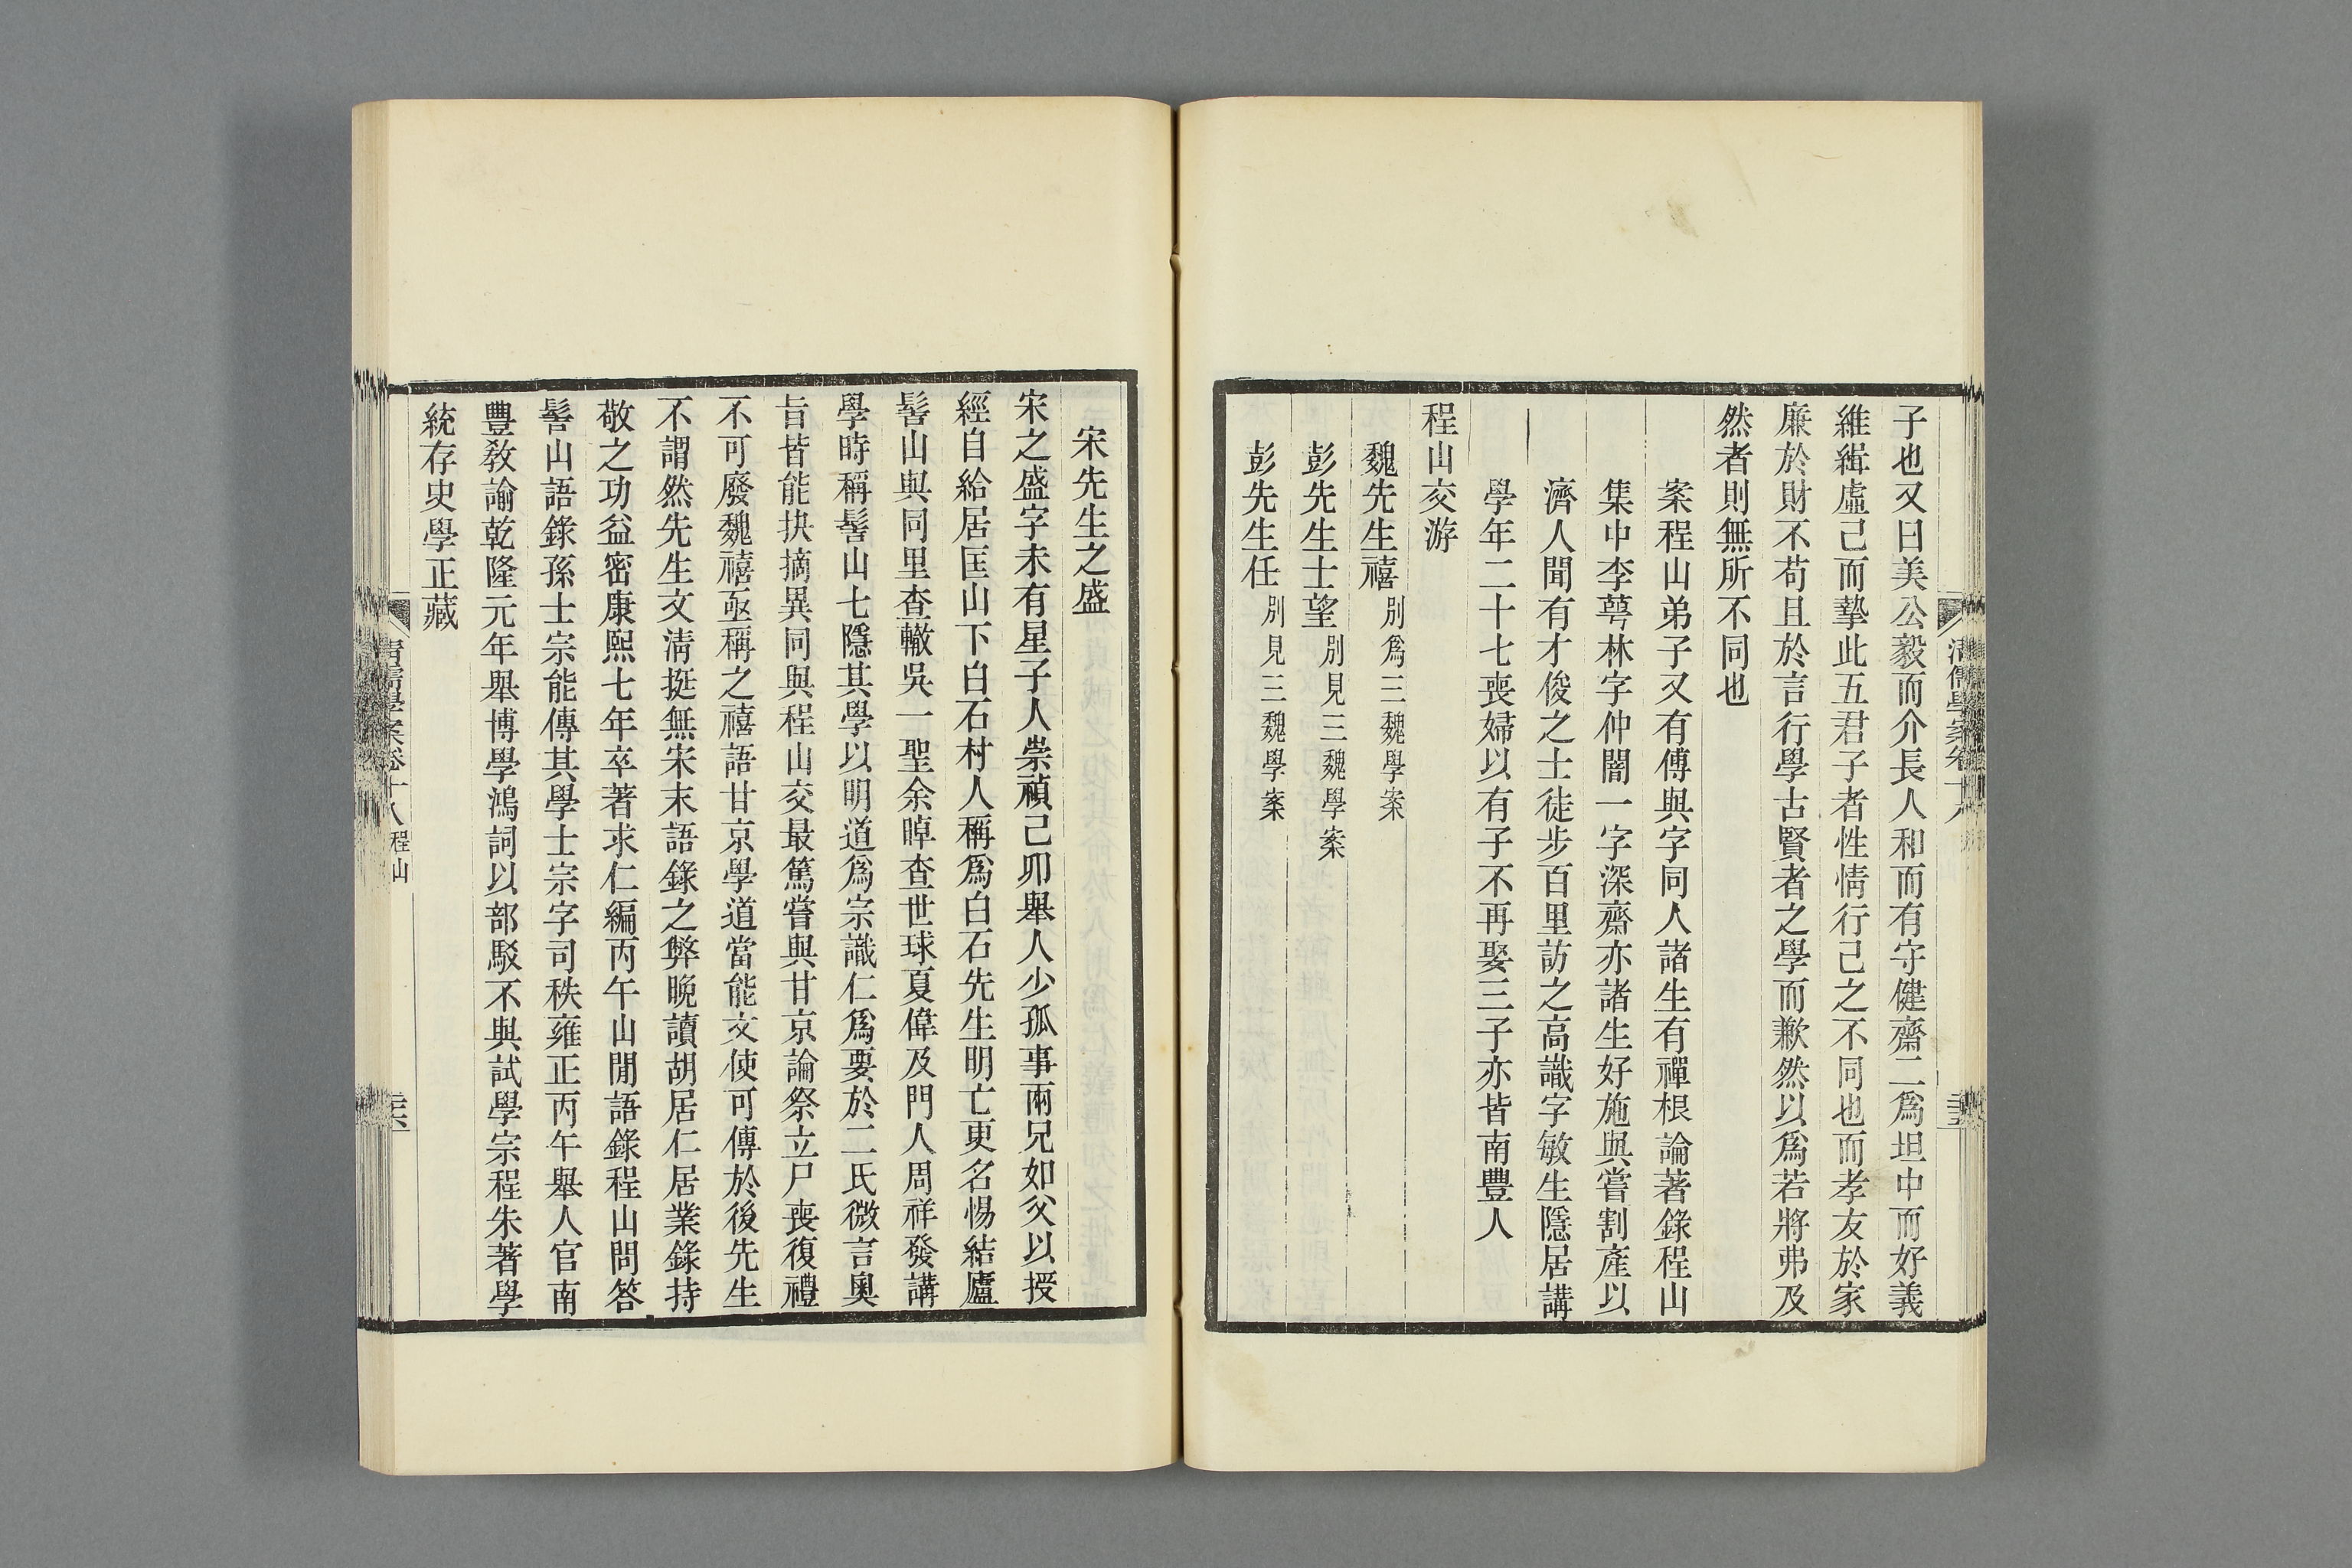 子也又曰美公毅而介長人和而有守健齋二爲坦中而好義
維緝虛己而摯此五君子者性情行己之不同也而孝友於家
廉於財不苟且於言行學古賢者之學而歉然以爲若將弗及
然者則無所不同也
案程山弟子又有傅與字同人諸生有禪根論著錄程山
集中李萼林字仲闇一字深齋亦諸生好施與嘗割產以
濟人聞有才俊之士徒步百里訪之高識字敏生隱居講
學年二十七喪婦以有子不再娶三子亦皆南豐人
程山交游
魏先生禧別爲三魏學案
彭先生士望別見三魏學案
彭先生任別見三魏學案
宋先生之盛
宋之盛字未有星子人崇禎己卯舉人少孤事兩兄如父以授
經自給居匡山下白石村人稱爲白石先生明亡更名惕結廬
髻山與同里查轍吳一聖余晫查世球夏偉及門人周祥發講
學時稱髻山七隱其學以明道爲宗識仁爲要於二氏微言奧
旨皆能抉摘異同與程山交最篤嘗與甘京論祭立尸喪復禮
不可廢魏禧亟稱之禧語甘京學道當能文使可傳於後先生
不謂然先生文淸挺無宋末語錄之弊晚讀胡居仁居業錄持
敬之功益密康熙七年卒著求仁編丙午山閒語錄程山問答
髻山語錄孫士宗能傳其學士宗字司秩雍正丙午舉人官南
豐敎諭乾隆元年舉博學鴻詞以部駁不與試學宗程朱著學
統存史學正藏
清儒學案卷十八 程山